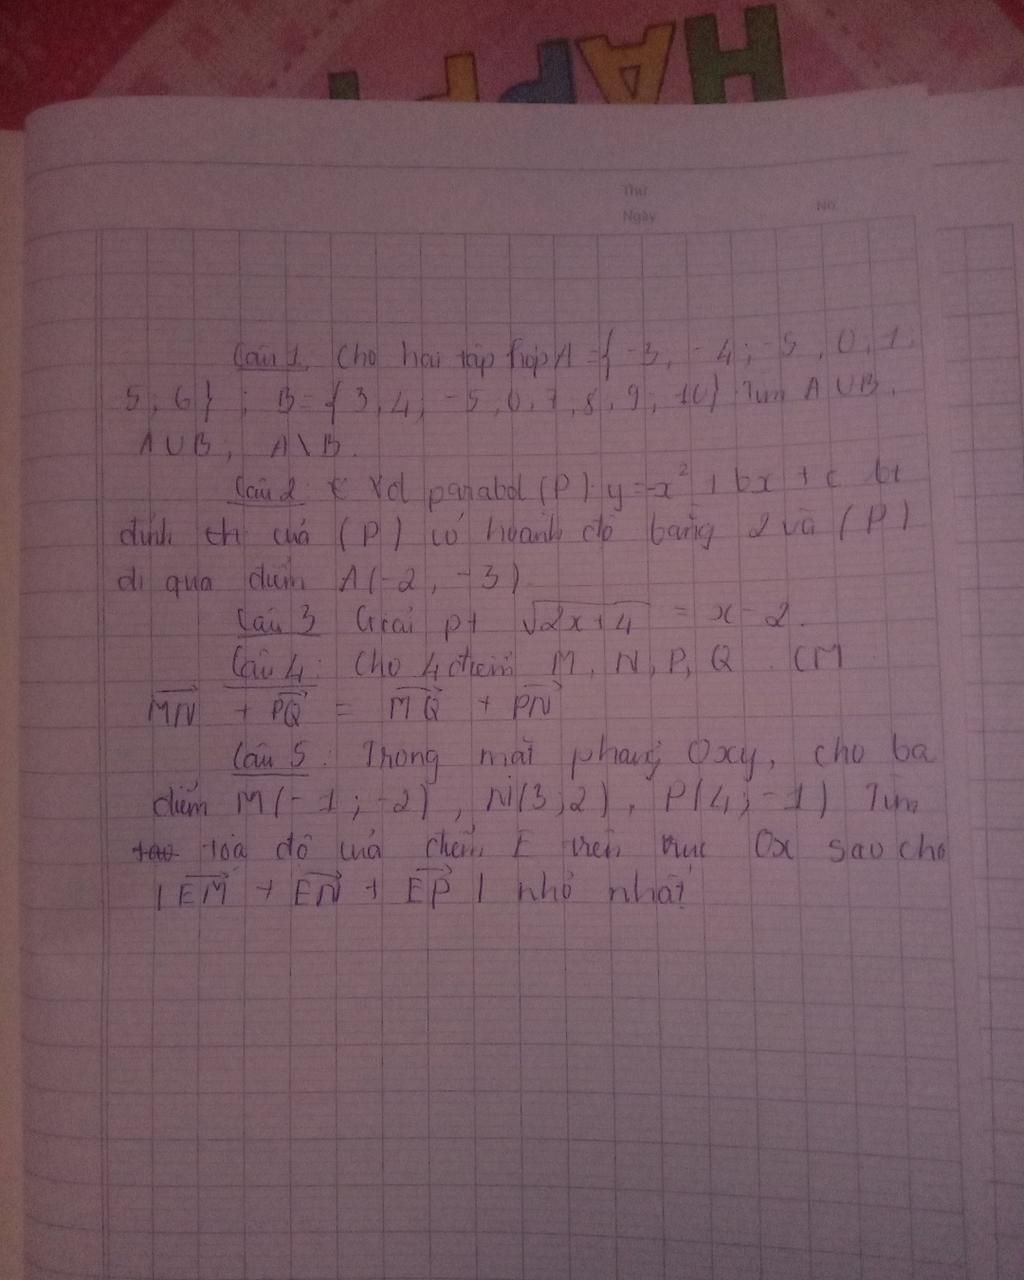 HAPPY
Thứ
Ngày No.
Câu 1. Cho hai tập hợp A = { -3, -4; -5, 0, 1;
5; 6} ; B = {3, 4; -5, 0, 7, 8, 9; 10} Tìm A ∪ B,
A ∪ B, A \ B.
Câu 2: Xđ parabol (P) y = -x² + bx + c bt
đỉnh của (P) có hoành độ bằng 2 và (P)
đi qua điểm A(-2, -3)
Câu 3 Giải pt √2x+4 = x - 2.
Câu 4: Cho 4 điểm M, N, P, Q. CM
MN + PQ = MQ + PN
Câu 5: Trong mặt phẳng Oxy, cho ba
điểm M(-1; -2), N(3; 2), P(4; -1) Tìm
tọa độ của điểm E trên trục Ox sao cho
| EM + EN + EP | nhỏ nhất